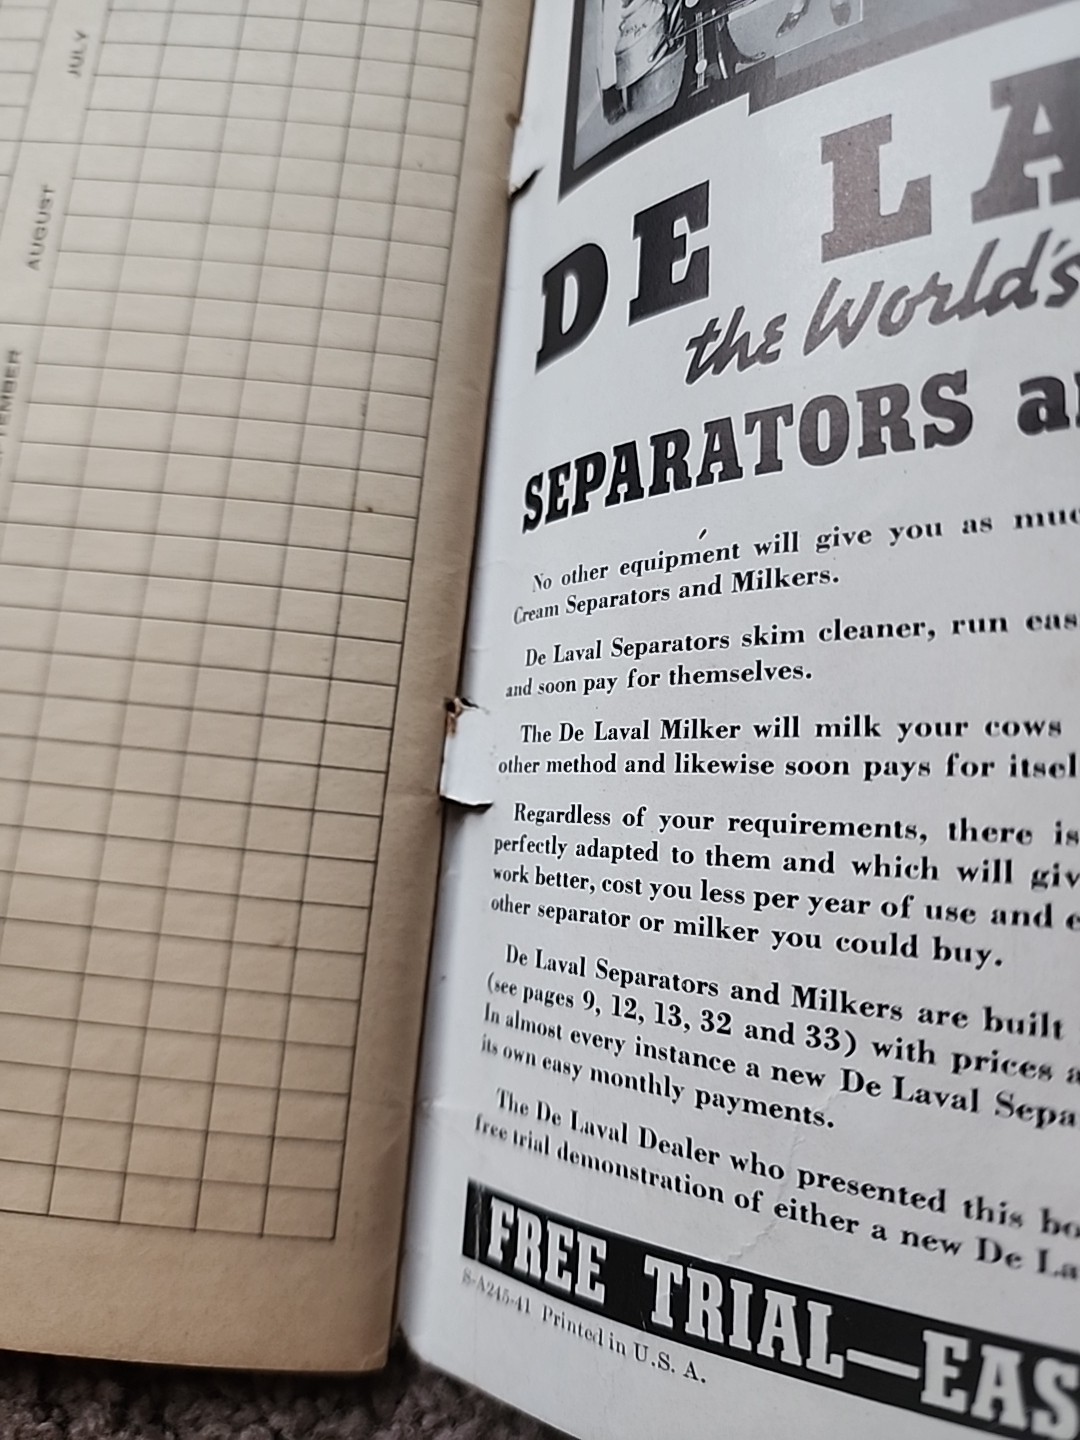 JULY
AUGUST
DE LA
the World's
SEPARATORS
No other equipment will give you as
Cream Separators and Milkers.
De Laval Separators skim cleaner, run
and soon pay for themselves.
The De Laval Milker will milk your cows
other method and likewise soon pays for
Regardless of your requirements, there is
perfectly adapted to them and which will
work better, cost you less per year of use and
other separator or milker you could buy.
De Laval Separators and Milkers are built
(see pages 9, 12, 13, 32 and 33) with prices
In almost every instance a new De Laval
its own easy monthly payments.
The De Laval Dealer who presented this
free trial demonstration of either a new De
FREE TRIAL—EAS
S-A245-41 Printed in U. S. A.